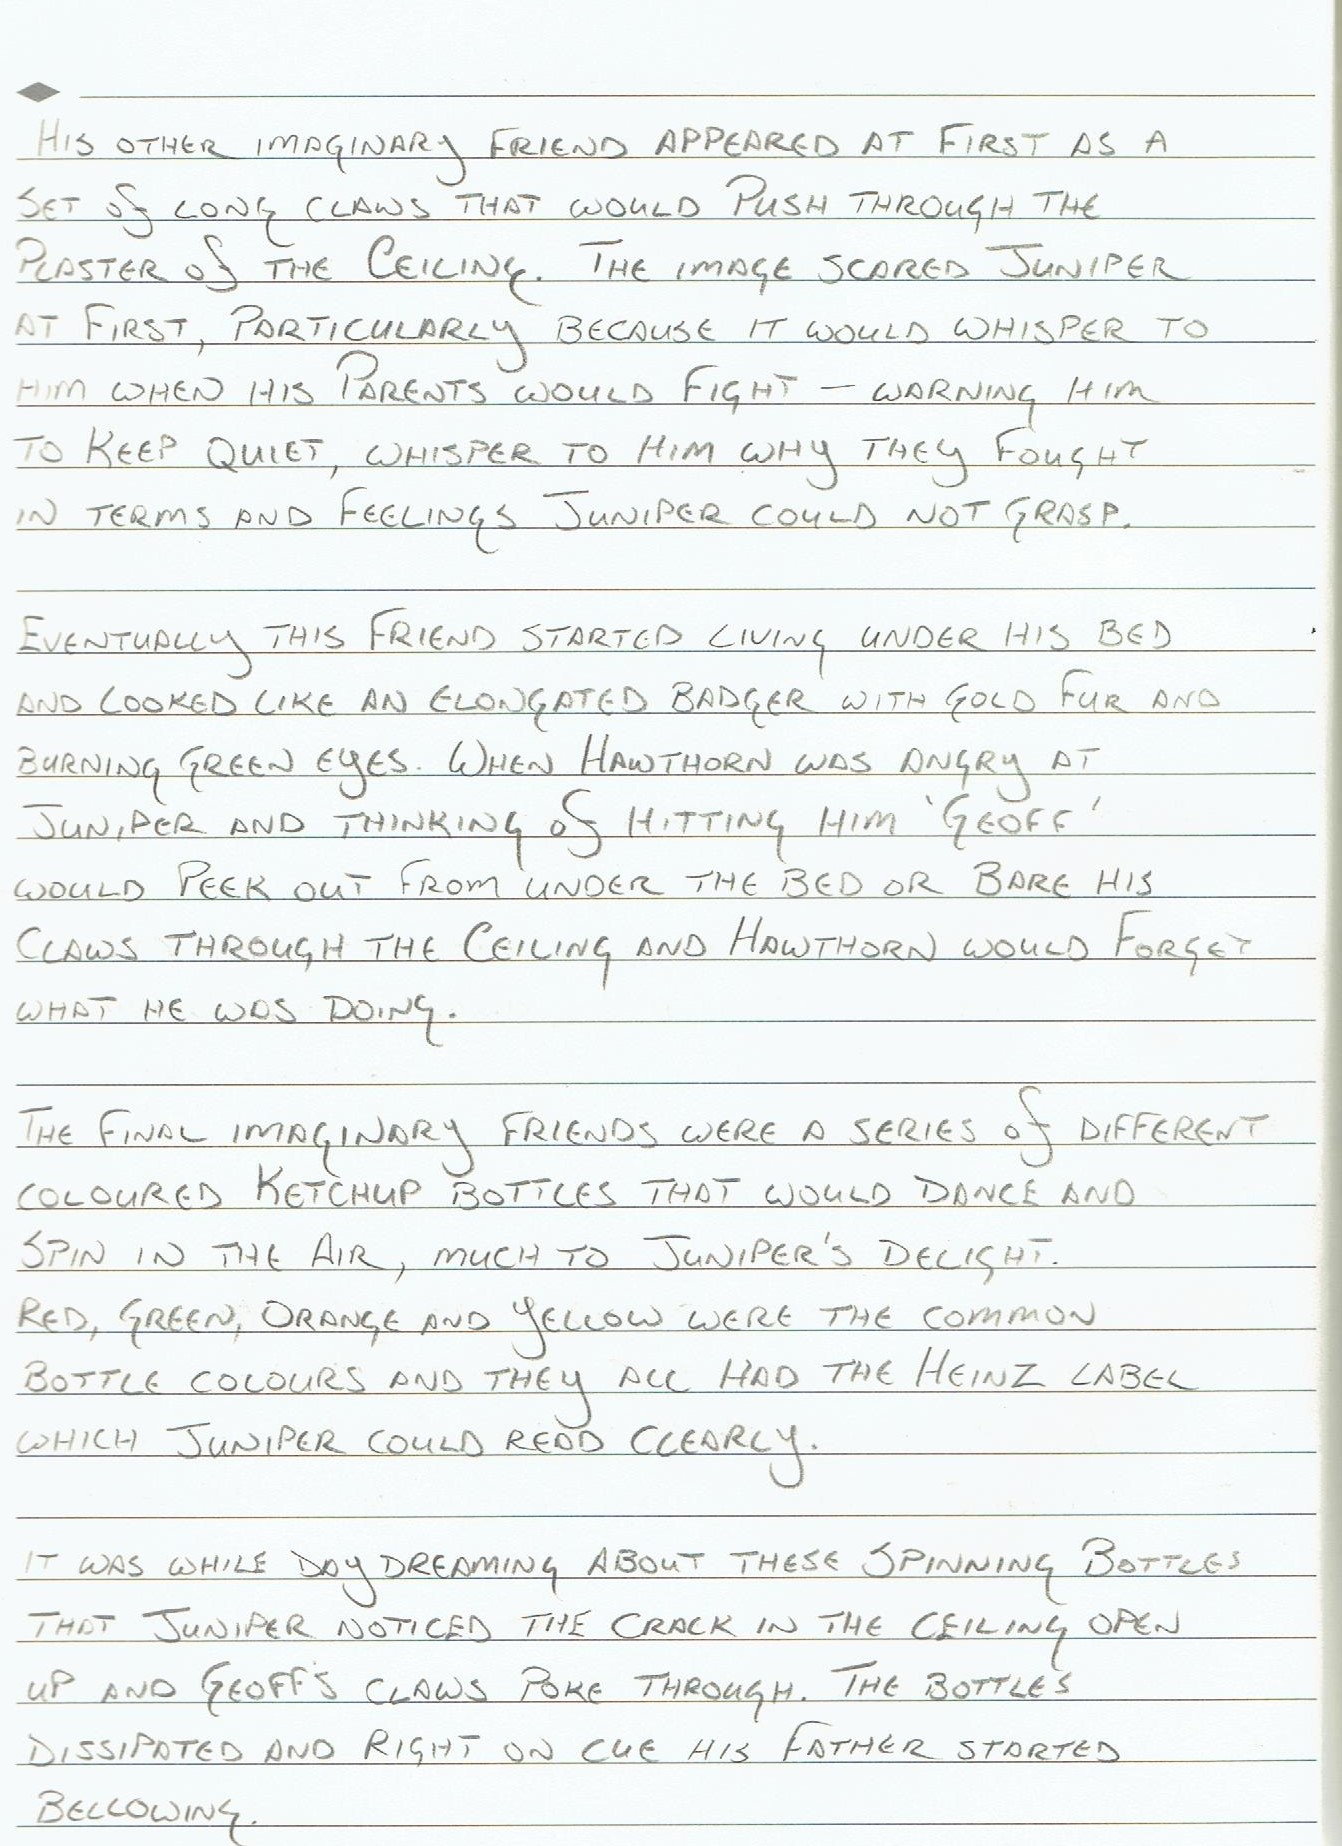 His other imaginary friend appeared at first as a
set of long claws that would push through the
plaster of the ceiling. The image scared Juniper
at first, particularly because it would whisper to
him when his parents would fight – warning him
to keep quiet, whisper to him why they fought
in terms and feelings Juniper could not grasp.
Eventually this friend started living under his bed
and looked like an elongated badger with gold fur and
burning green eyes. When Hawthorn was angry at
Juniper and thinking of hitting him 'Geoff'
would peek out from under the bed or bare his
claws through the ceiling and Hawthorn would forget
what he was doing.
The final imaginary friends were a series of different
coloured ketchup bottles that would dance and
spin in the air, much to Juniper's delight.
Red, green, orange and yellow were the common
bottle colours and they all had the Heinz label
which Juniper could read clearly.
It was while daydreaming about these spinning bottles
that Juniper noticed the crack in the ceiling open
up and Geoff's claws poke through. The bottles
dissipated and right on cue his father started
bellowing.